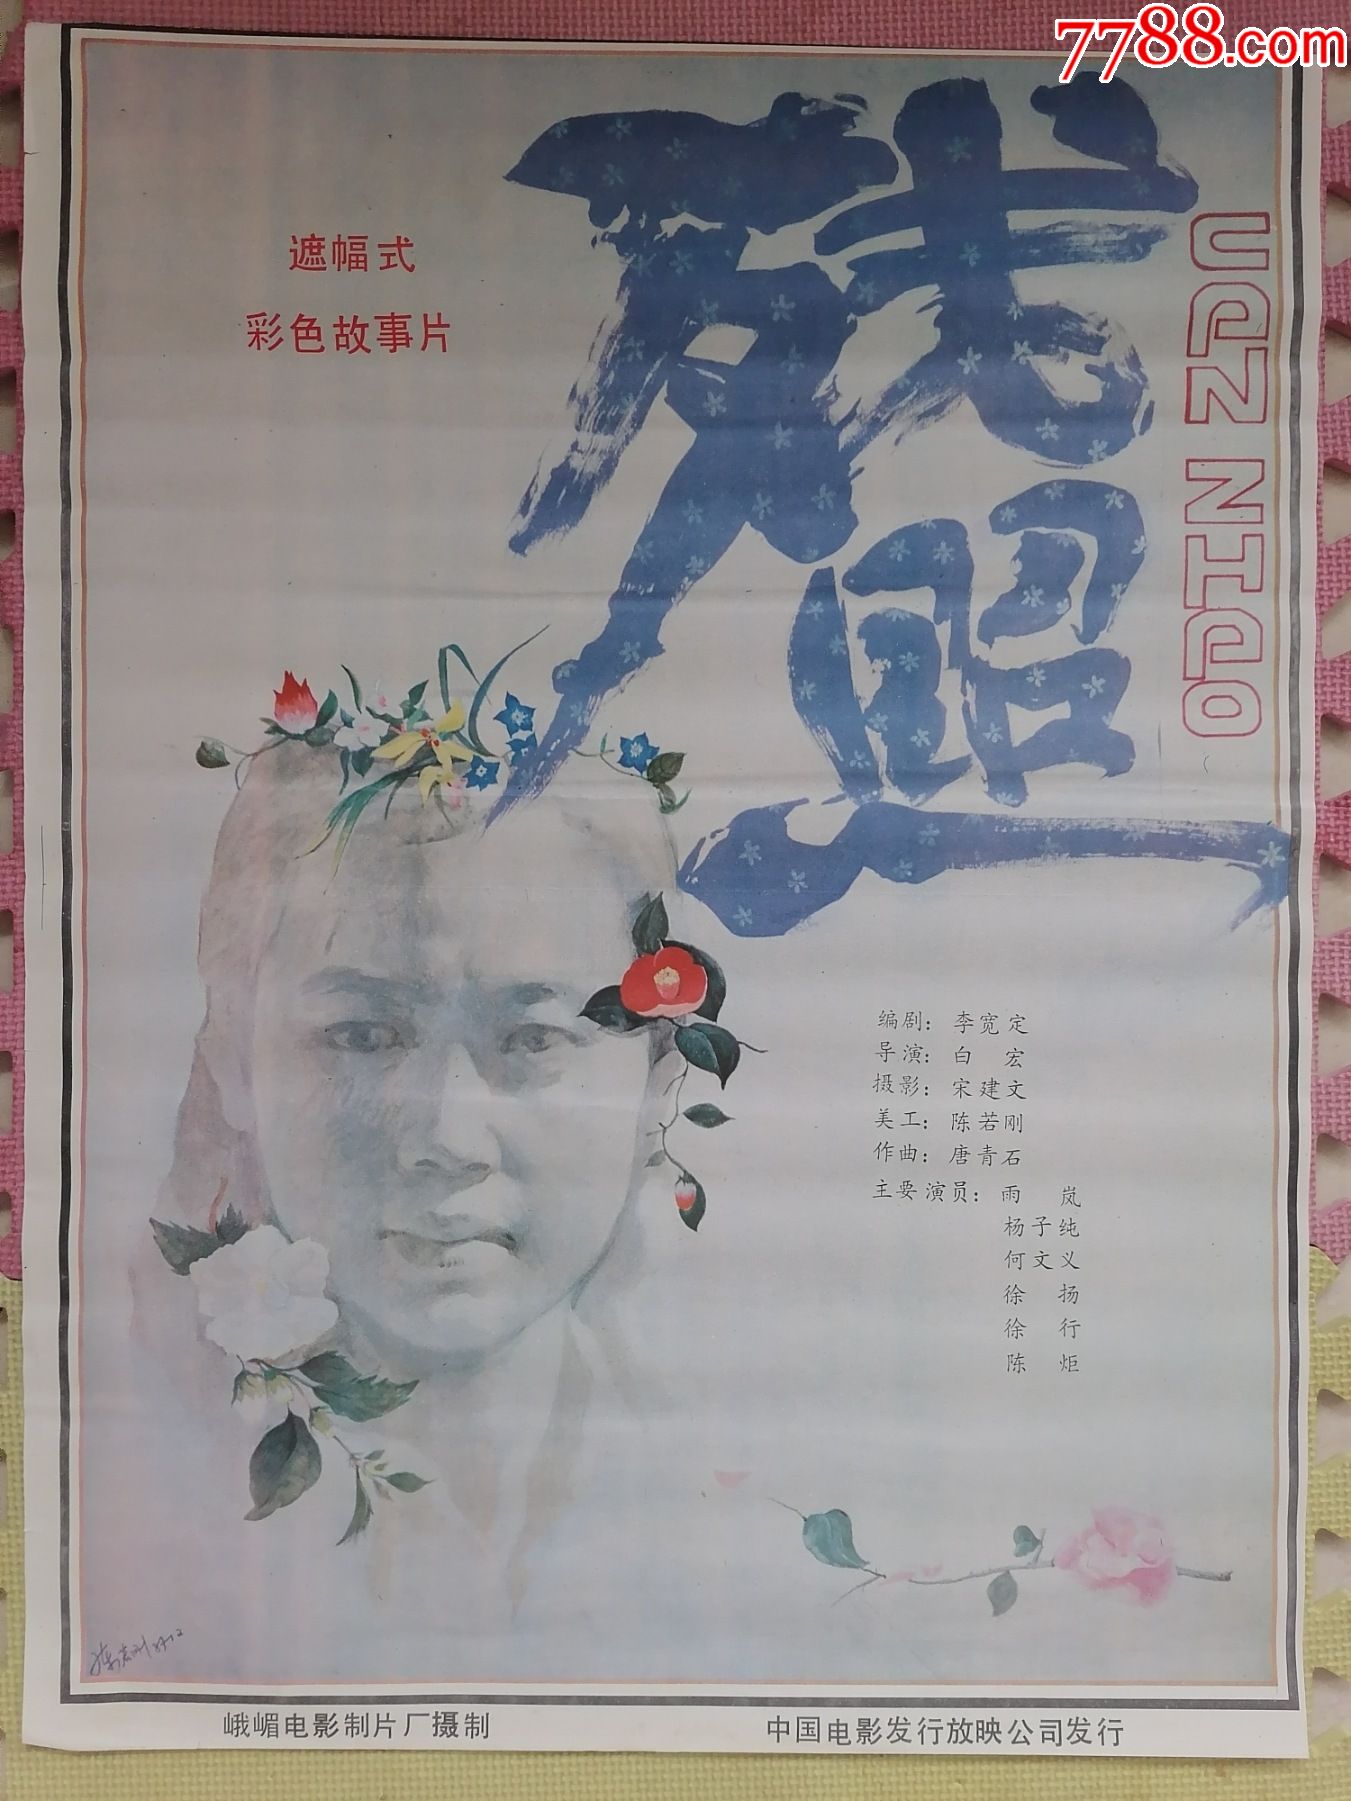 7788.com
残照
CAN ZHAO
遮幅式
彩色故事片
编剧：李宽定
导演：白 宏
摄影：宋建文
美工：陈若刚
作曲：唐青石
主要演员：雨 岚
杨子纯
何文义
徐 扬
徐 行
陈 炬
峨嵋电影制片厂摄制
中国电影发行放映公司发行